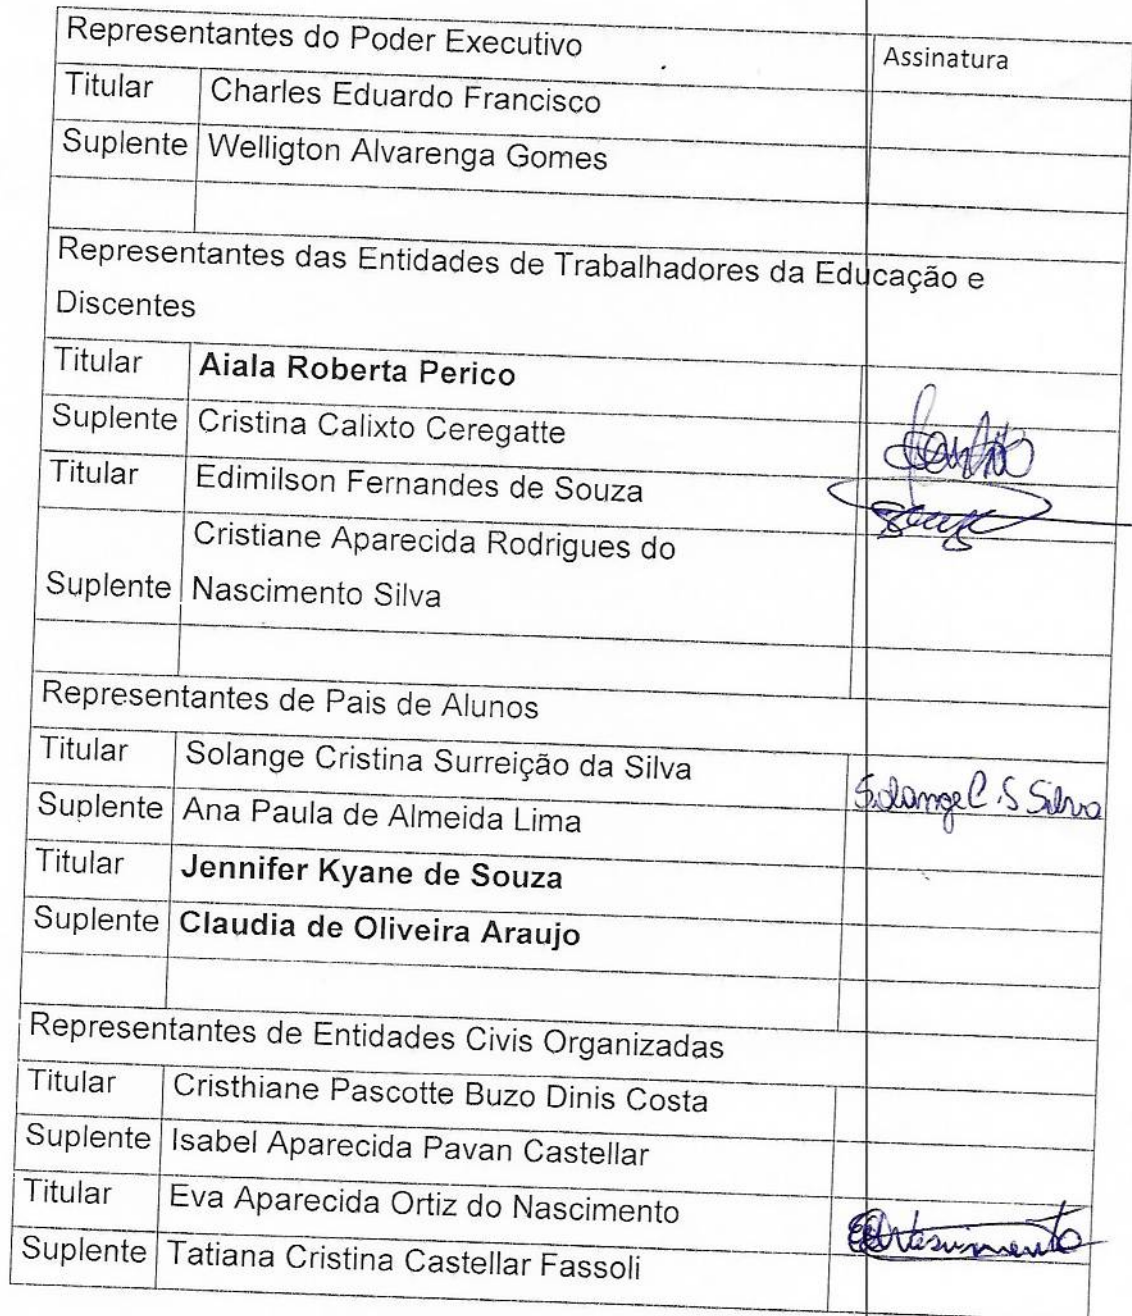 Representantes do Poder Executivo Assinatura
Titular Charles Eduardo Francisco
Suplente Welligton Alvarenga Gomes
Representantes das Entidades de Trabalhadores da Educação e
Discentes
Titular Aiala Roberta Perico
Suplente Cristina Calixto Ceregatte
Titular Edimilson Fernandes de Souza
Cristiane Aparecida Rodrigues do
Suplente Nascimento Silva
Representantes de Pais de Alunos
Titular Solange Cristina Surreição da Silva Solange C. S Silva
Suplente Ana Paula de Almeida Lima
Titular Jennifer Kyane de Souza
Suplente Claudia de Oliveira Araujo
Representantes de Entidades Civis Organizadas
Titular Cristhiane Pascotte Buzo Dinis Costa
Suplente Isabel Aparecida Pavan Castellar
Titular Eva Aparecida Ortiz do Nascimento
Suplente Tatiana Cristina Castellar Fassoli